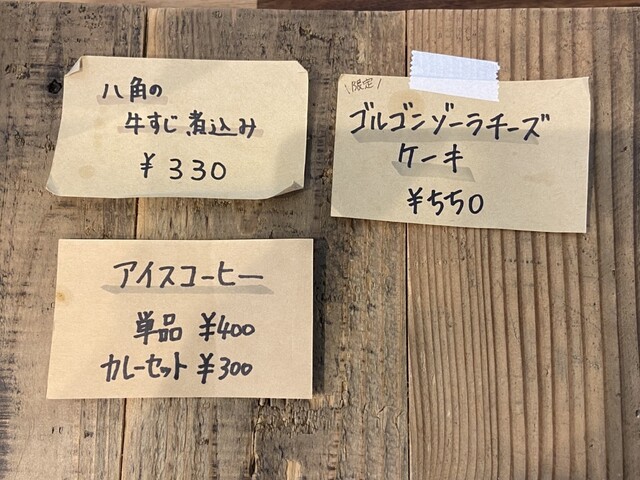 八角の
牛すじ煮込み
¥330
\限定/
ゴルゴンゾーラチーズ
ケーキ
¥550
アイスコーヒー
単品 ¥400
カレーセット ¥300